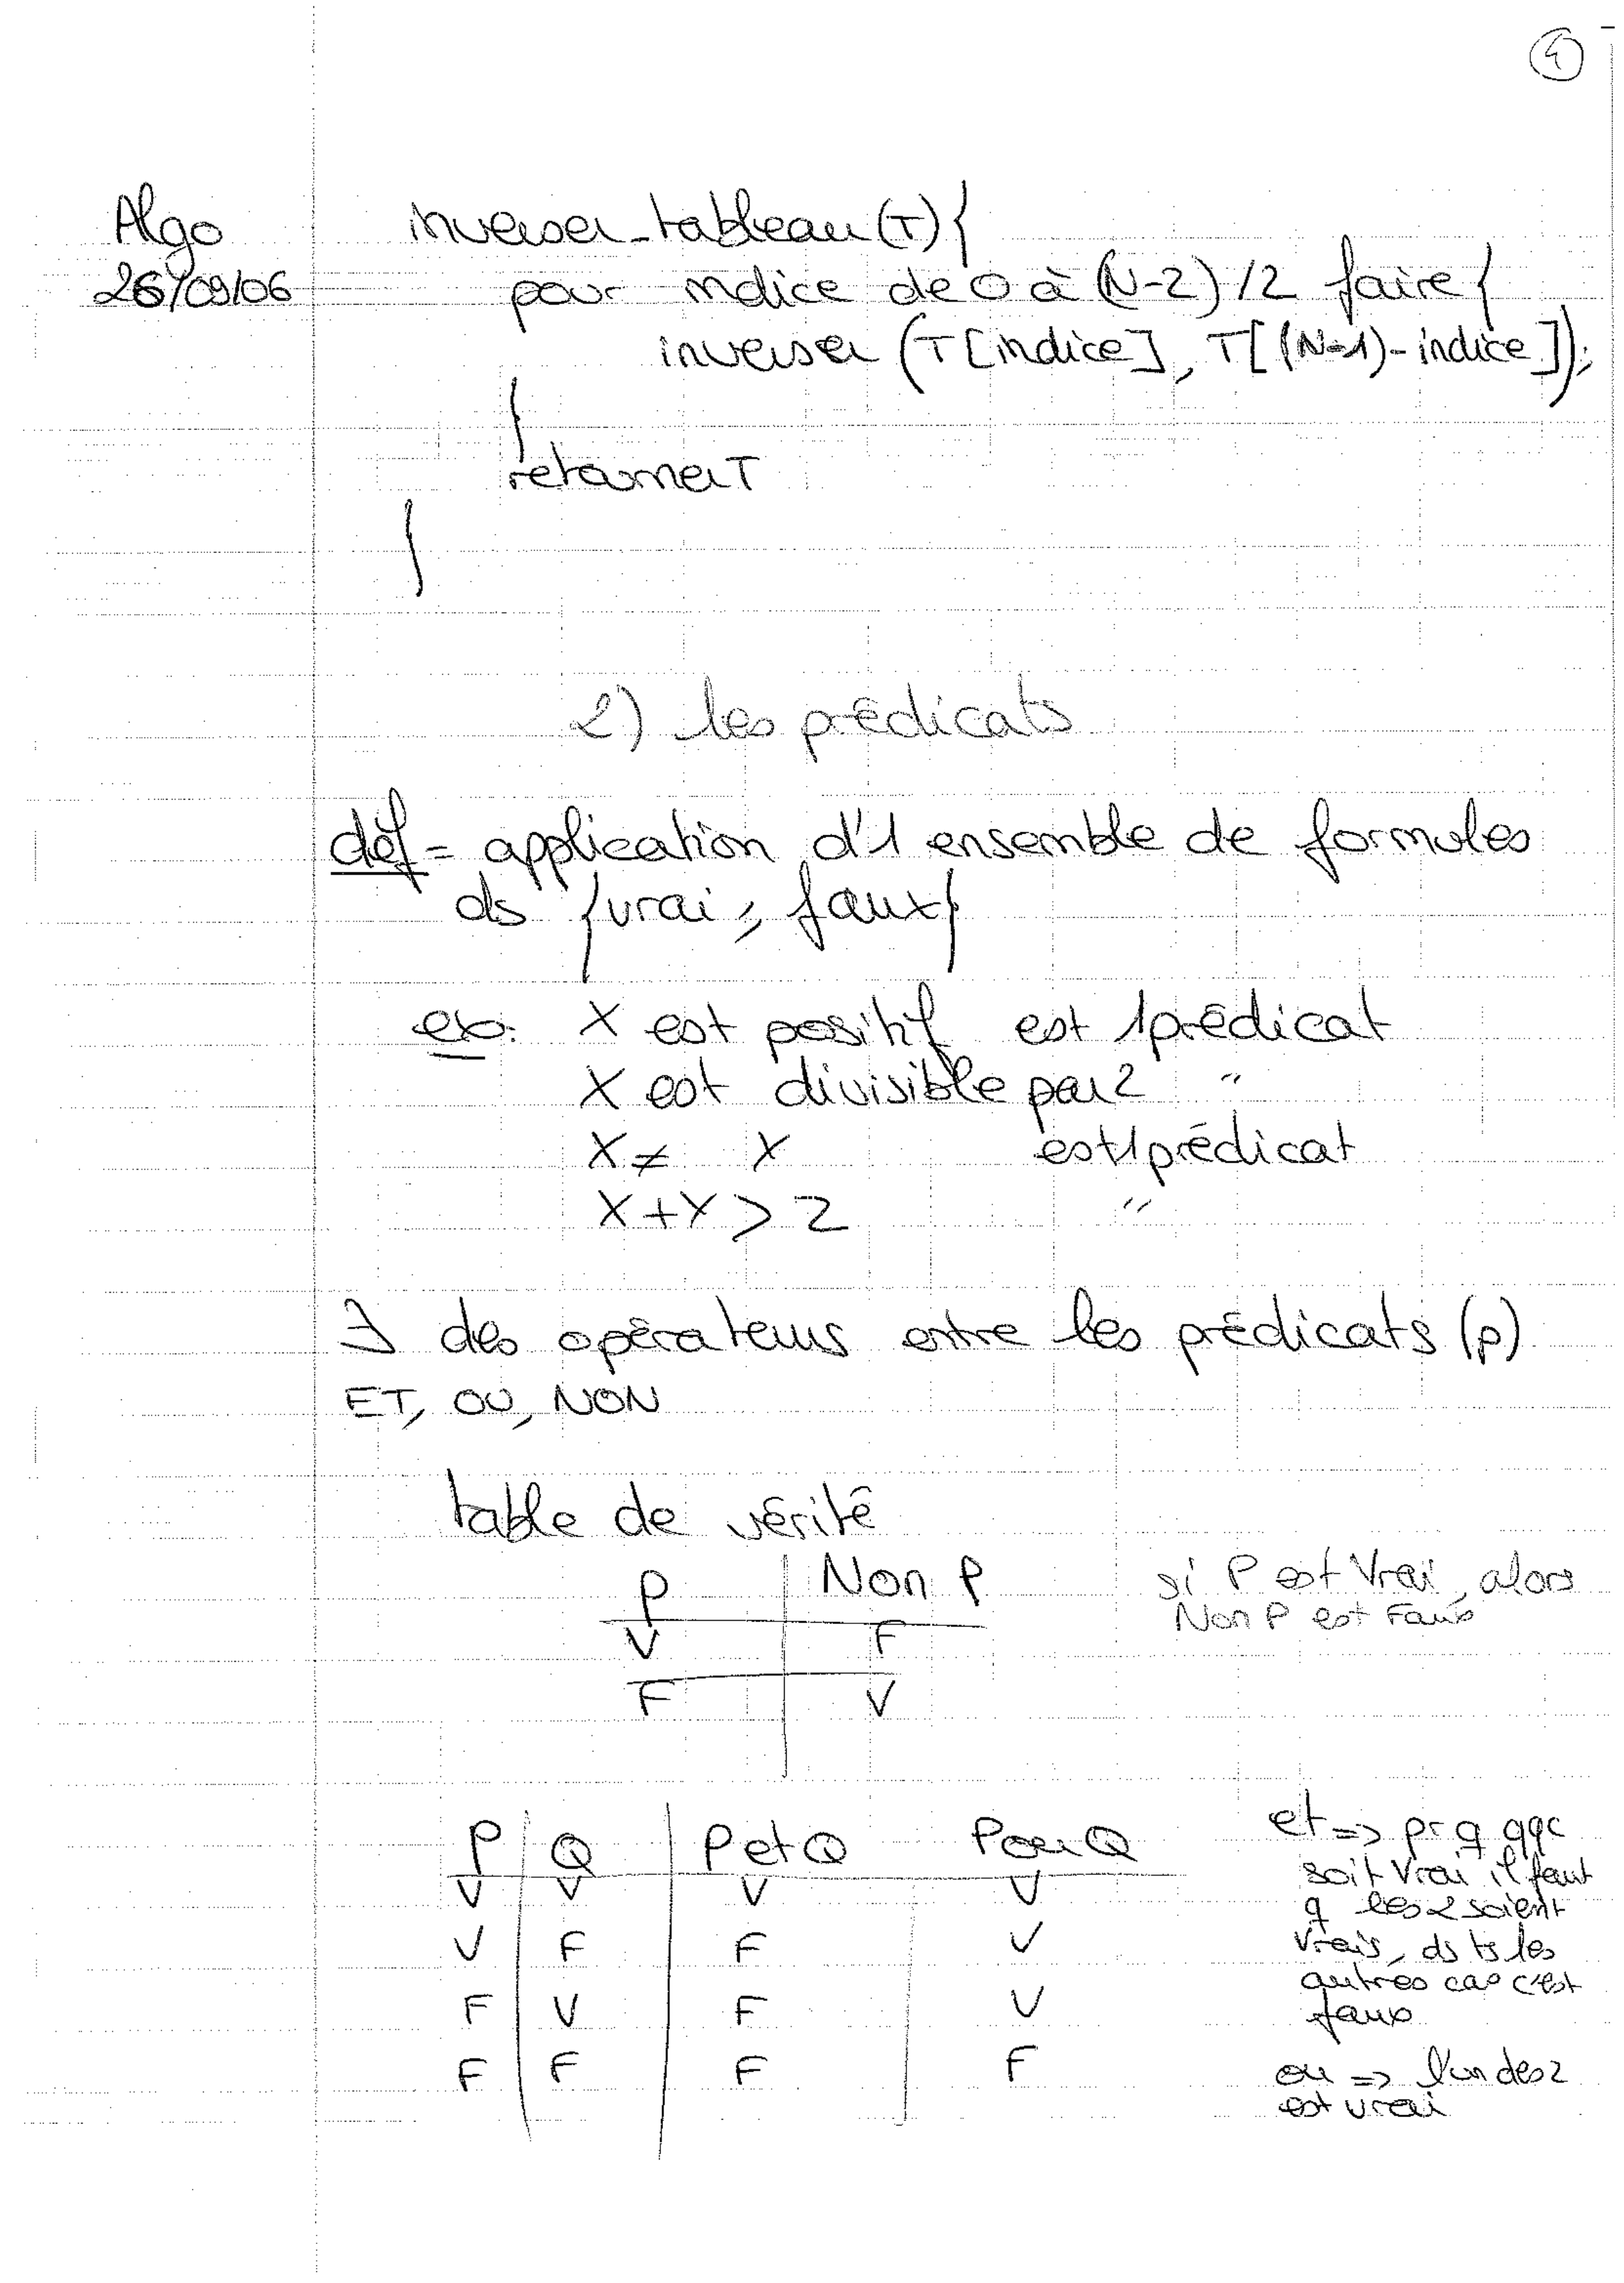 Algo
26/09/06
inverser_tableau(T){
pour indice de 0 à (N-2)/2 faire {
inverser (T[indice], T[(N-1)-indice]);
}
retourner T
}
2) les prédicats
déf = application d'1 ensemble de formules
ds {vrai, faux}
ex: X est positif est 1 prédicat
X est divisible par 2 "
X ≠ X est 1 prédicat
X+Y > 2 "
∃ des opérateurs entre les prédicats (p)
ET, OU, NON
table de vérité
P | Non P
V | F
F | V
si P est Vrai, alors
Non P est Faux
P | Q | P et Q P ou Q
V | V | V V
V | F | F V
F | V | F V
F | F | F F
et => pr q qqc
soit Vrai il faut
q les 2 soient
Vrais, ds ts les
autres cas c'est
faux
ou => l'un des 2
est vrai